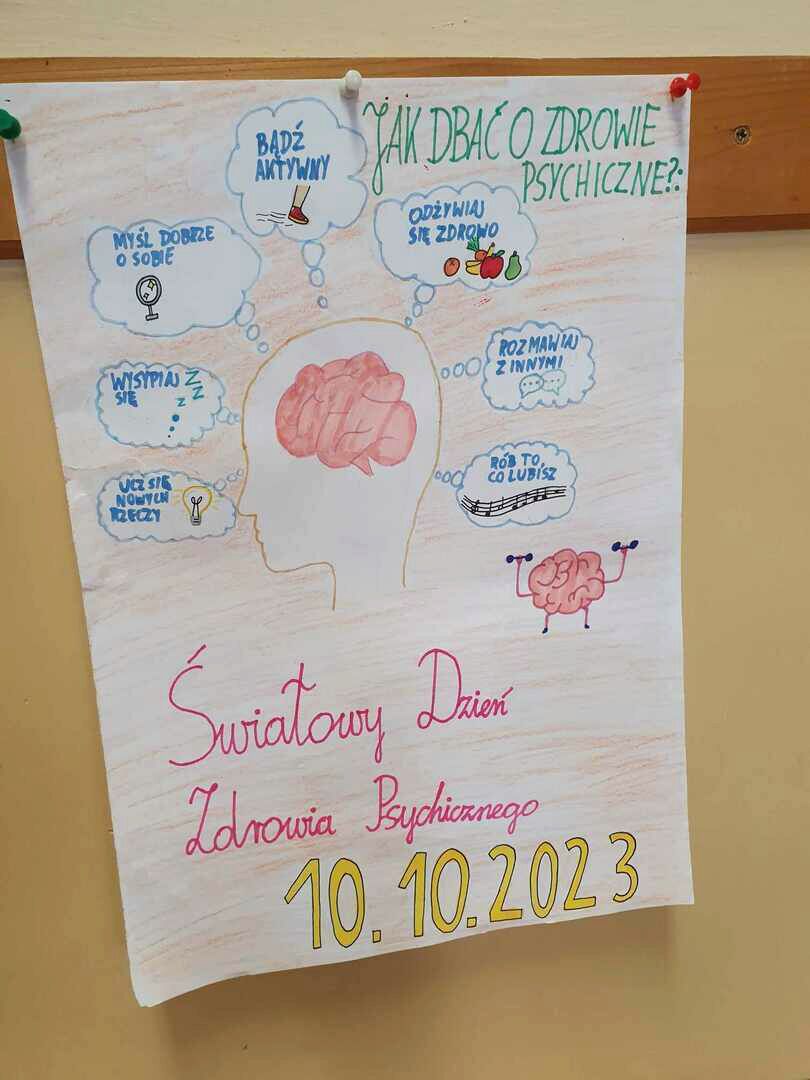 JAK DBAĆ O ZDROWIE
PSYCHICZNE?:
BĄDŹ
AKTYWNY
ODŻYWIAJ
SIĘ ZDROWO
MYŚL DOBRZE
O SOBIE
ROZMAWIAJ
Z INNYMI
WYSYPIAJ
SIĘ
Z
Z
Z
RÓB TO,
CO LUBISZ
UCZ SIĘ
NOWYCH
RZECZY
Światowy Dzień
Zdrowia Psychicznego
10.10.2023